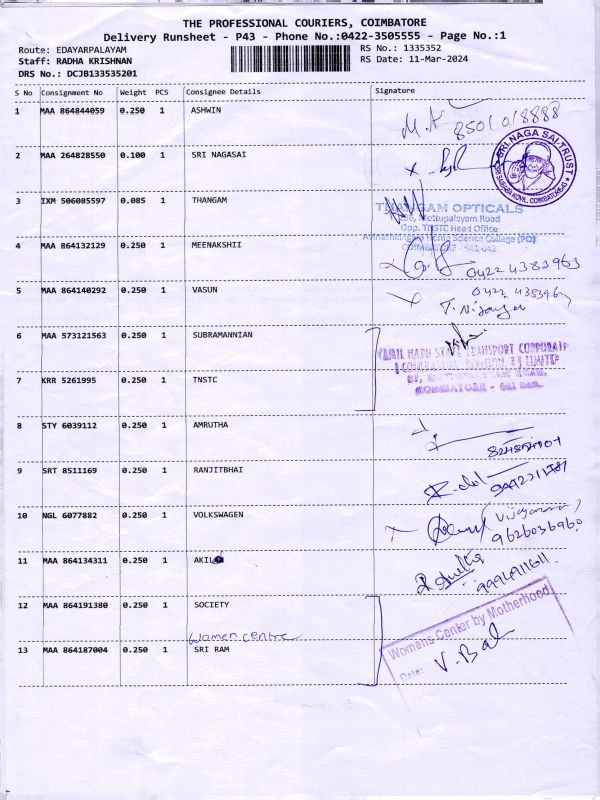 THE PROFESSIONAL COURIERS, COIMBATORE
Delivery Runsheet - P43 - Phone No.:0422-3505555 - Page No.:1
Route: EDAYARPALAYAM RS No.: 1335352
Staff: RADHA KRISHNAN RS Date: 11-Mar-2024
DRS No.: DCJB133535201
S No Consignment No Weight PCS Consignee Details Signature
1 MAA 864844059 0.250 1 ASHWIN
2 MAA 264828550 0.100 1 SRI NAGASAI
SRI NAGA SAI TRUST
3 IXM 506085597 0.085 1 THANGAM
THANGAM OPTICALS
Mettupalayam Road
Opp. TNSTC Head Office
Avinashilingam Home Science College (PO)
COIMBATORE - 641 043
4 MAA 864132129 0.250 1 MEENAKSHII
0422 4383963
5 MAA 864140292 0.250 1 VASUN
0422 4383963
6 MAA 573121563 0.250 1 SUBRAMANNIAN
TAMIL NADU STATE TRANSPORT CORPORATION
7 KRR 5261995 0.250 1 TNSTC
8 STY 6039112 0.250 1 AMRUTHA
9 SRT 8511169 0.250 1 RANJITBHAI
10 NGL 6077882 0.250 1 VOLKSWAGEN
9626036960
11 MAA 864134311 0.250 1
9994911611
12 MAA 864191380 0.250 1 SOCIETY
women centre
Womens Center by Motherhood
13 MAA 864187004 0.250 1 SRI RAM
Date:
V. Bal